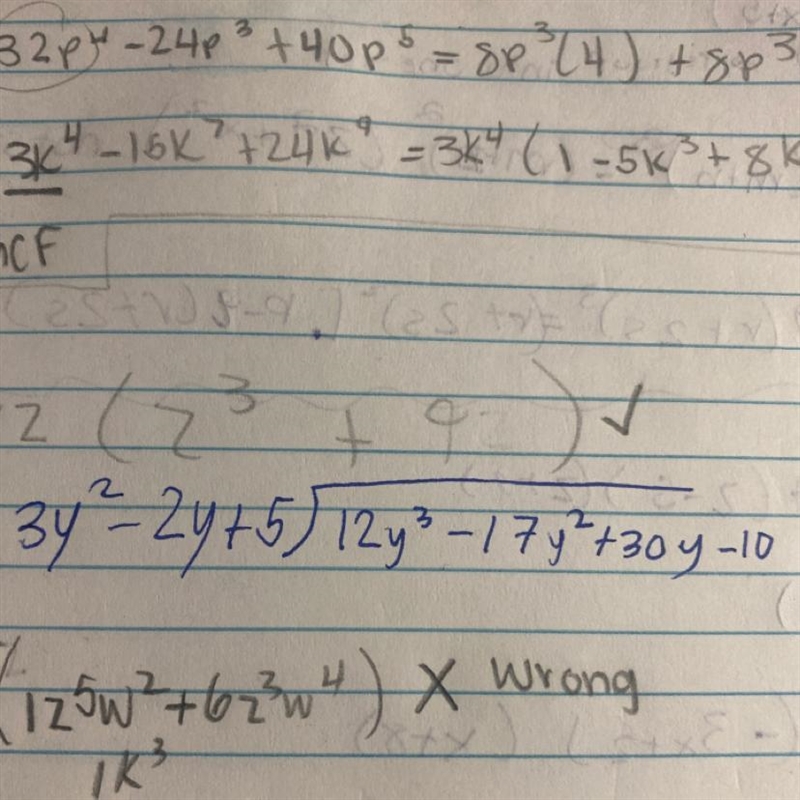 32p⁴ - 24p³ + 40p⁵ = 8p³(4) + 8p³
3k⁴ - 15k⁷ + 24k⁹ = 3k⁴(1 - 5k³ + 8k
CF
z(z³ + 9z) ✓
3y² - 2y + 5)12y³ - 17y² + 30y - 10
(1z⁵w² + 6z³w⁴) X Wrong
1k³